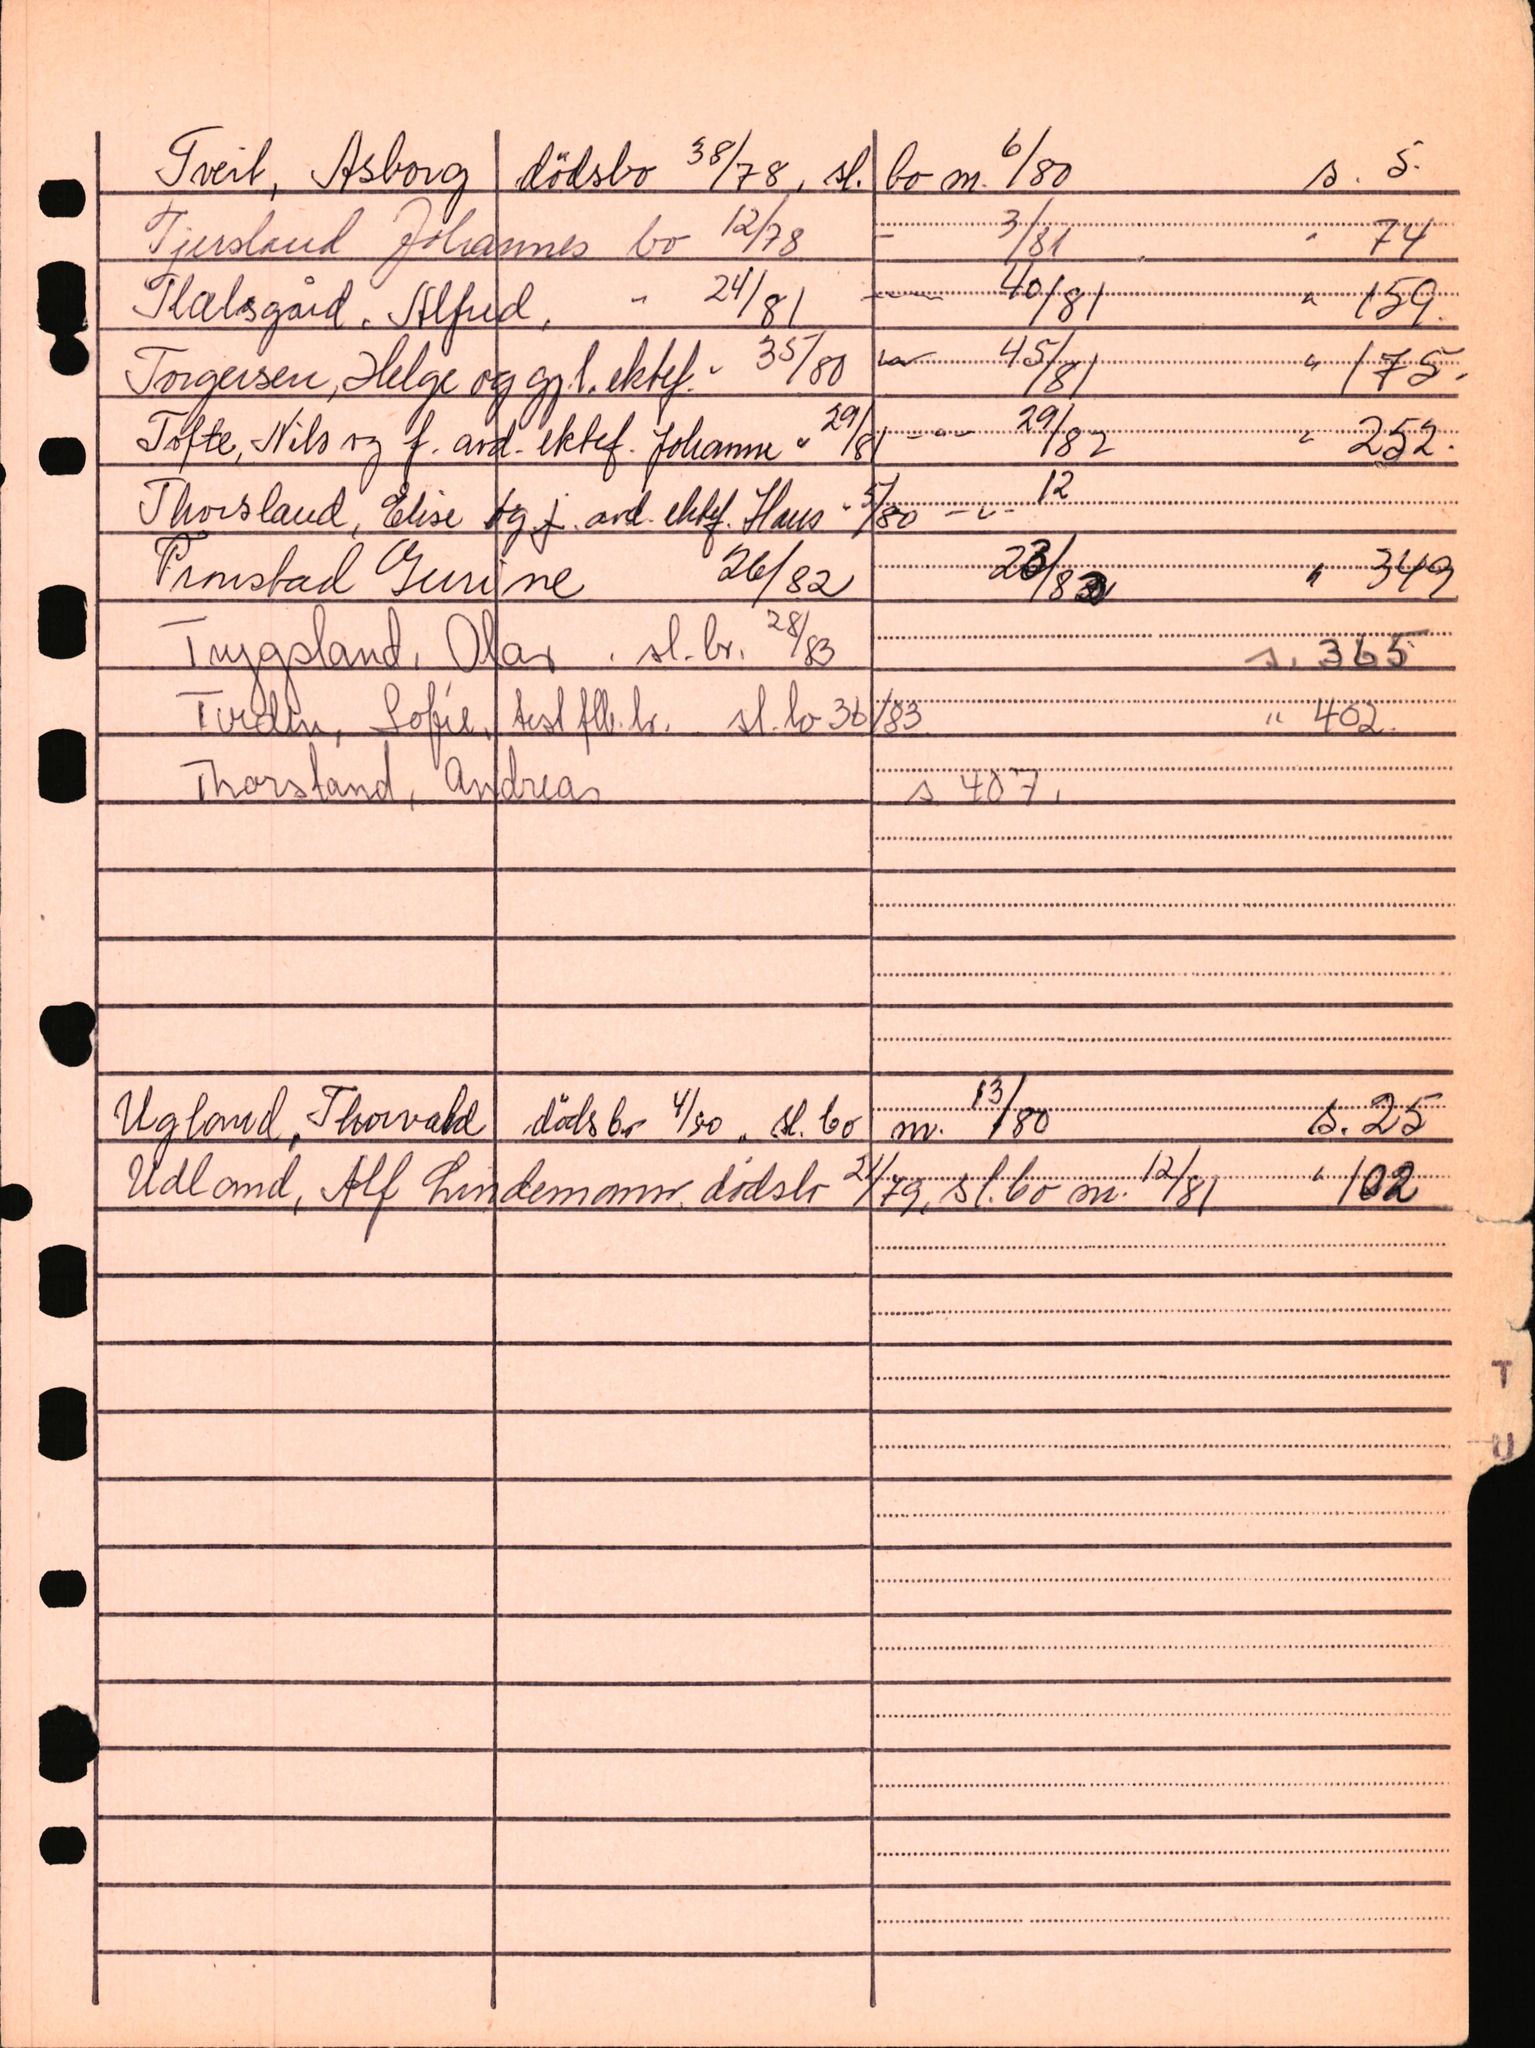 Tveit, Asborg dödsbo 38/78, sl. bo m. 6/80 s. 5.
Tjersland Johannes bo 12/78 - 3/81 " 74
Alfred, " 24/81 --- 40/81 " 159.
Torgersen, Helge og gjl. ektef. " 35/80 " 45/81 " 175.
Tofte, Nils og f. avd. ektef. Johanne " 29/81 - " - 29/82 " 252.
Thorsland, Elise og f. avd. ektef. Hans " 5/80 - " - 12
Tronstad Gurine 26/82 23/83 " 349
Tryggsland, Olav . sl. bo. 28/83 s. 365
Sofie, sl. bo 36/83 " 402.
Thorsland, Andreas s 407.
Ugland, Thorvald dödsbo 4/80, sl. bo m. 13/80 s. 25
Udland, Alf Lindemann, dödsbo 21/79, sl. bo m. 12/81 " 102
T
U